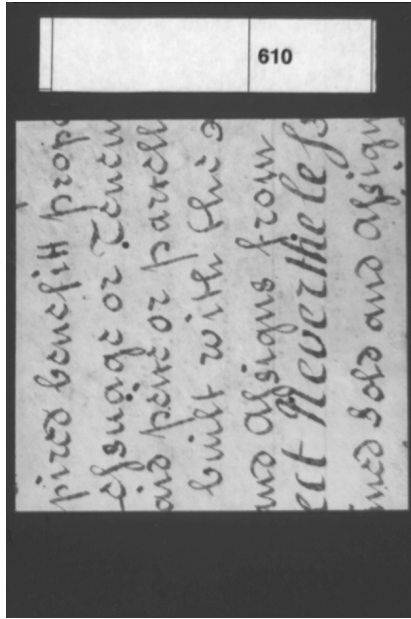 610
pired benefitt prop
essuage or Tenem
aid peice or parcell
built with
and assigns from
ect Nevertheless
ned sold and assign